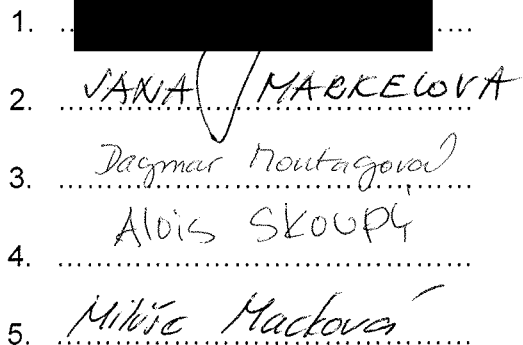 1. .. ....
2. JANA MARKELOVA
3. Dagmar Moutagová
4. Alois SKOUPÝ
5. Miluše Macková